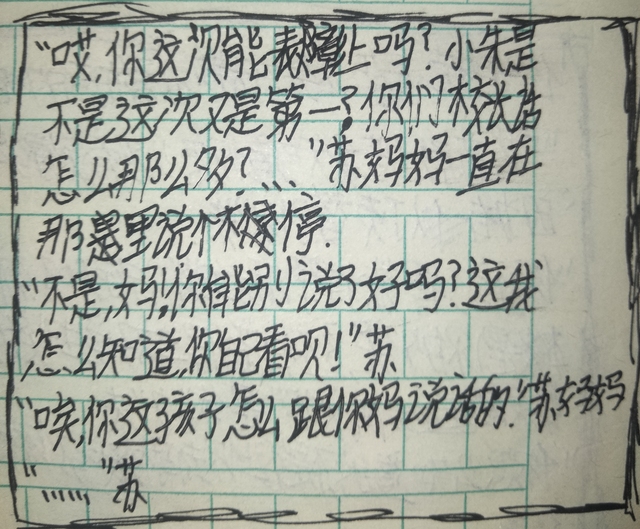 “哎,你这次能表障上吗?小朱是
不是这次又是第一?你们校长话
怎么那么多?...”苏妈妈一直在
那里说个不停.
“不是,妈,你能别说了好吗?这我
怎么知道,你自己看呗!”苏
“唉,你这孩子怎么跟你妈说话的.”苏妈妈
“......”苏